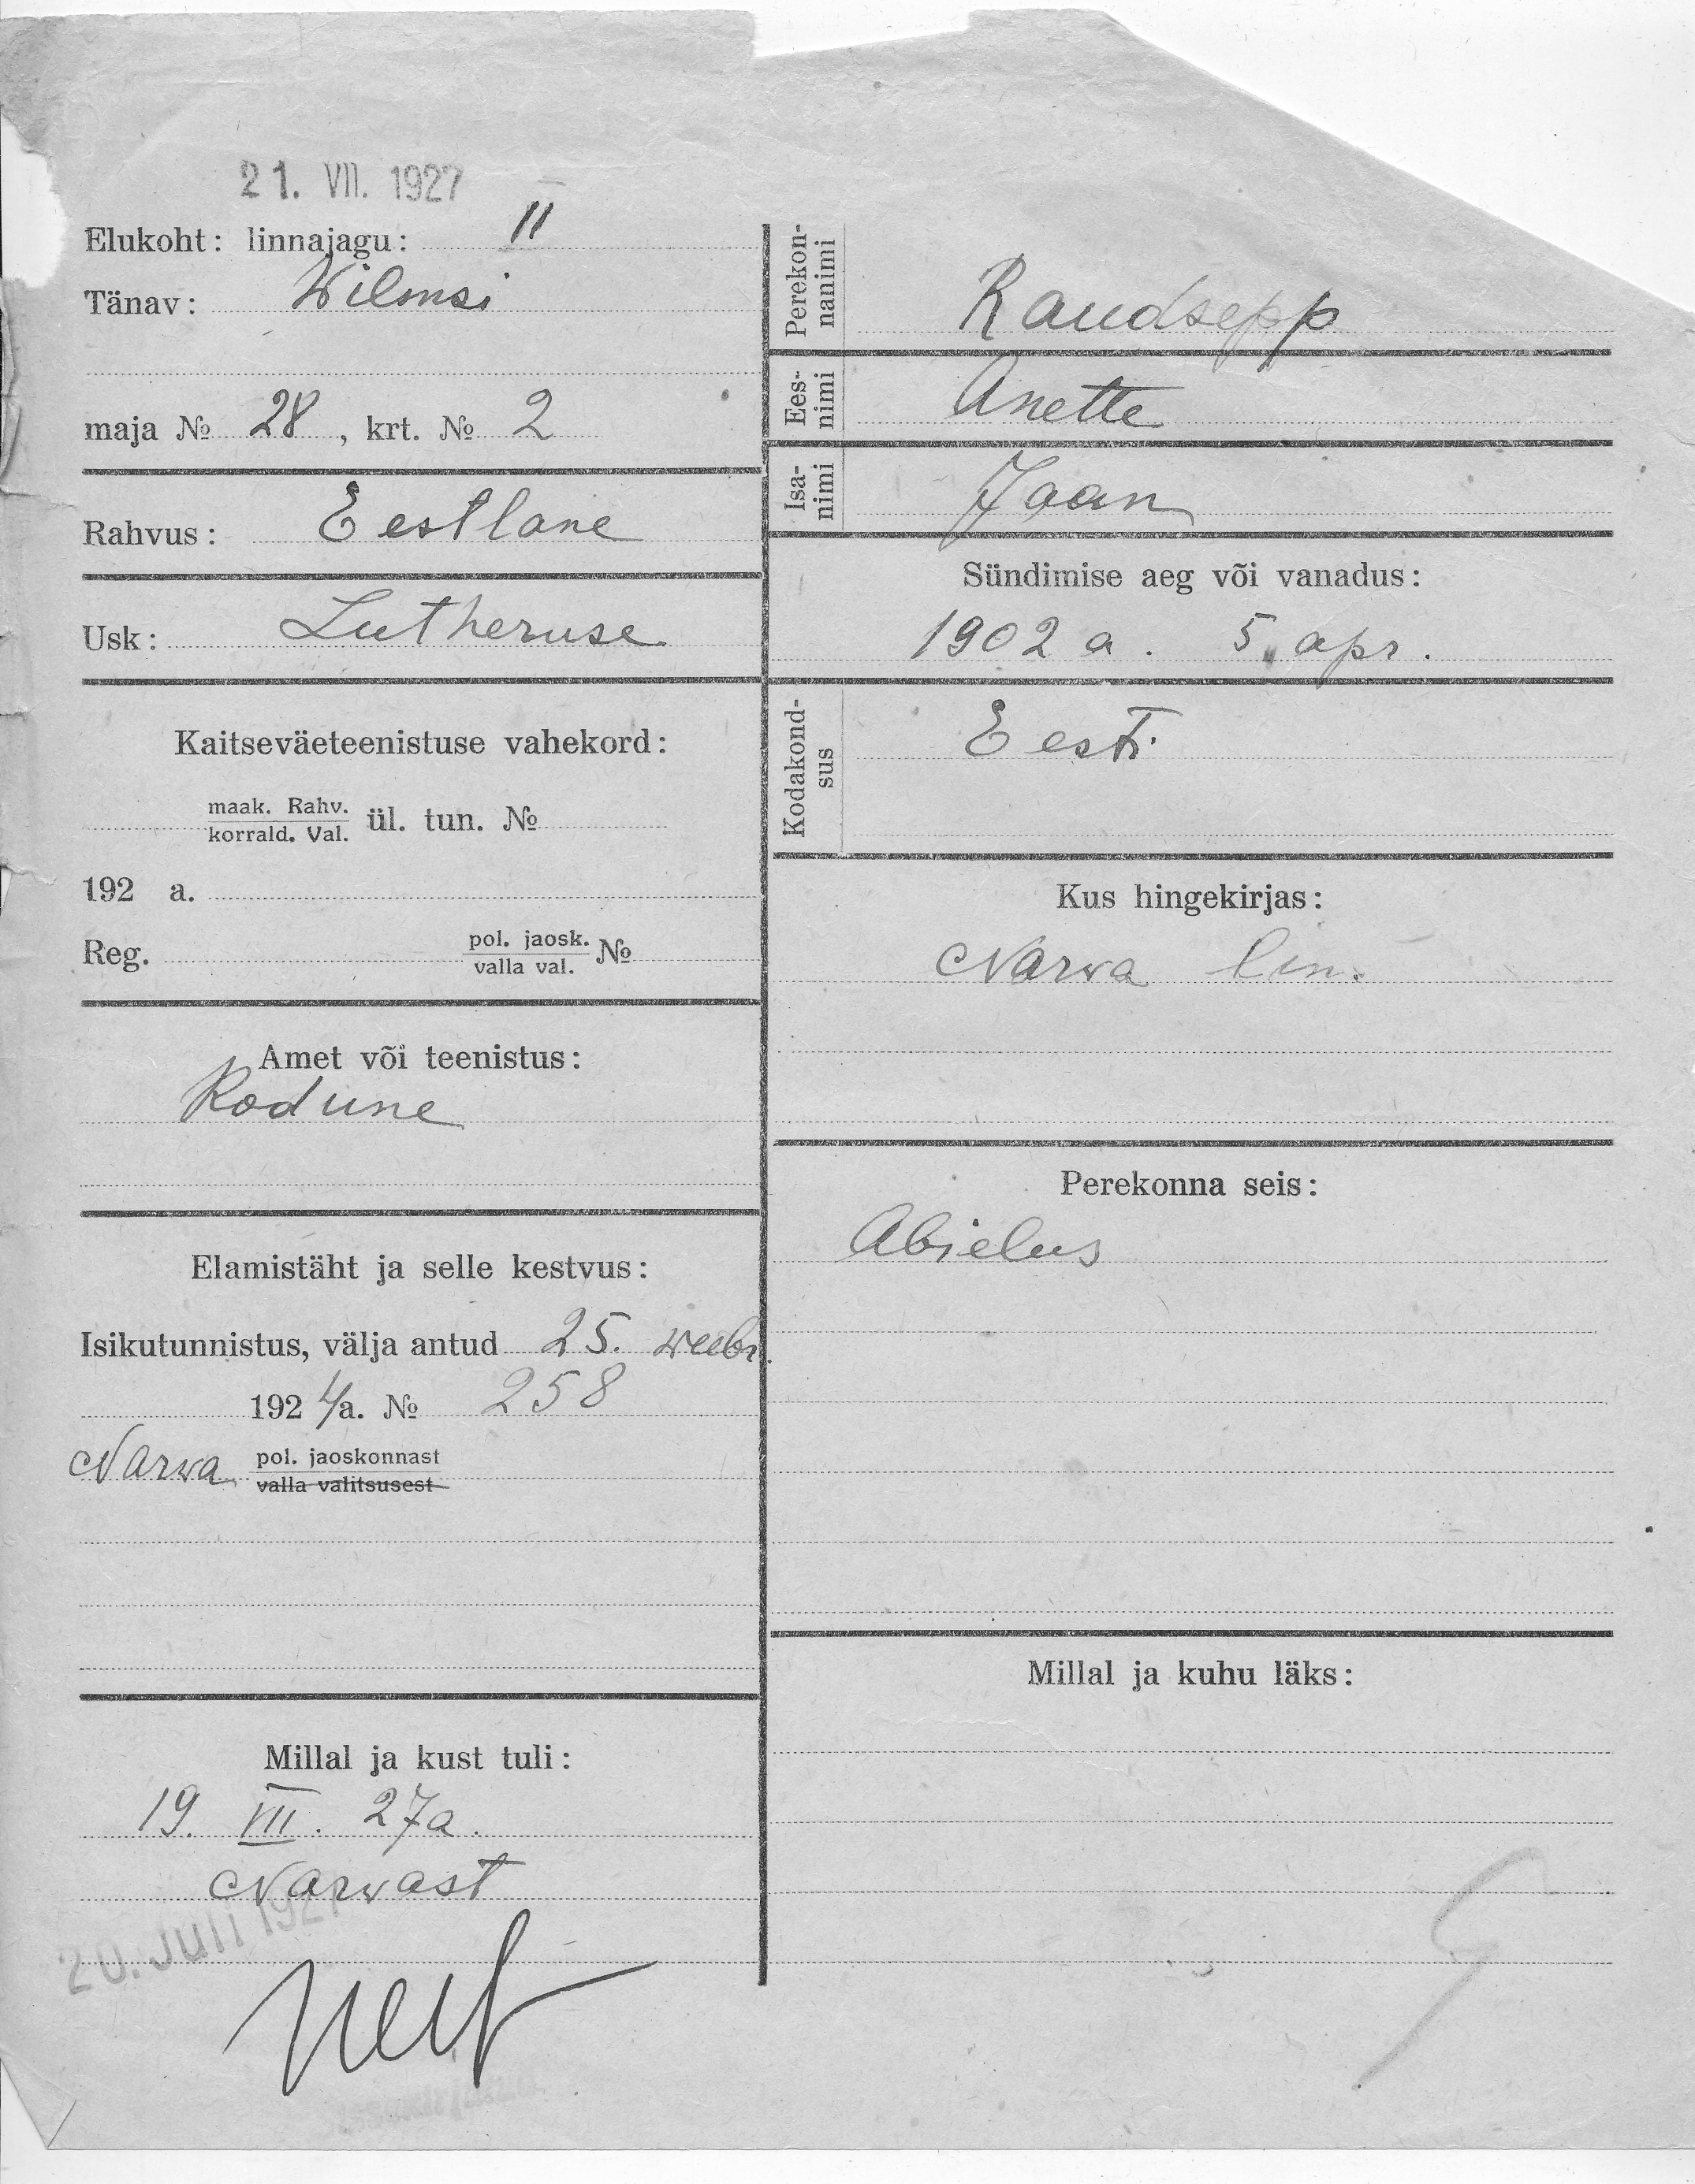 21. VII. 1927
Elukoht: linnajagu: II
Tänav: Wilmsi
maja № 28, krt. № 2
Rahvus: Eestlane
Usk: Lutheruse
Kaitseväeteenistuse vahekord:
maak. Rahv.
korrald. Val. ül. tun. №
192 a.
Reg. pol. jaosk. №
valla val.
Amet või teenistus:
Kodune
Elamistäht ja selle kestvus:
Isikutunnistus, välja antud 25. weebr.
1924 a. № 258
Narwa pol. jaoskonnast
valla valitsusest
Millal ja kust tuli:
19. VII. 27a.
Narwast
20. Juli 1927
Perekon-
nanimi
Raudsepp
Ees-
nimi
Anette
Isa-
nimi
Jaan
Sündimise aeg või vanadus:
1902 a. 5. apr.
Kodakond-
sus
Eesti
Kus hingekirjas:
Narwa lin.
Perekonna seis:
Abielus
Millal ja kuhu läks: